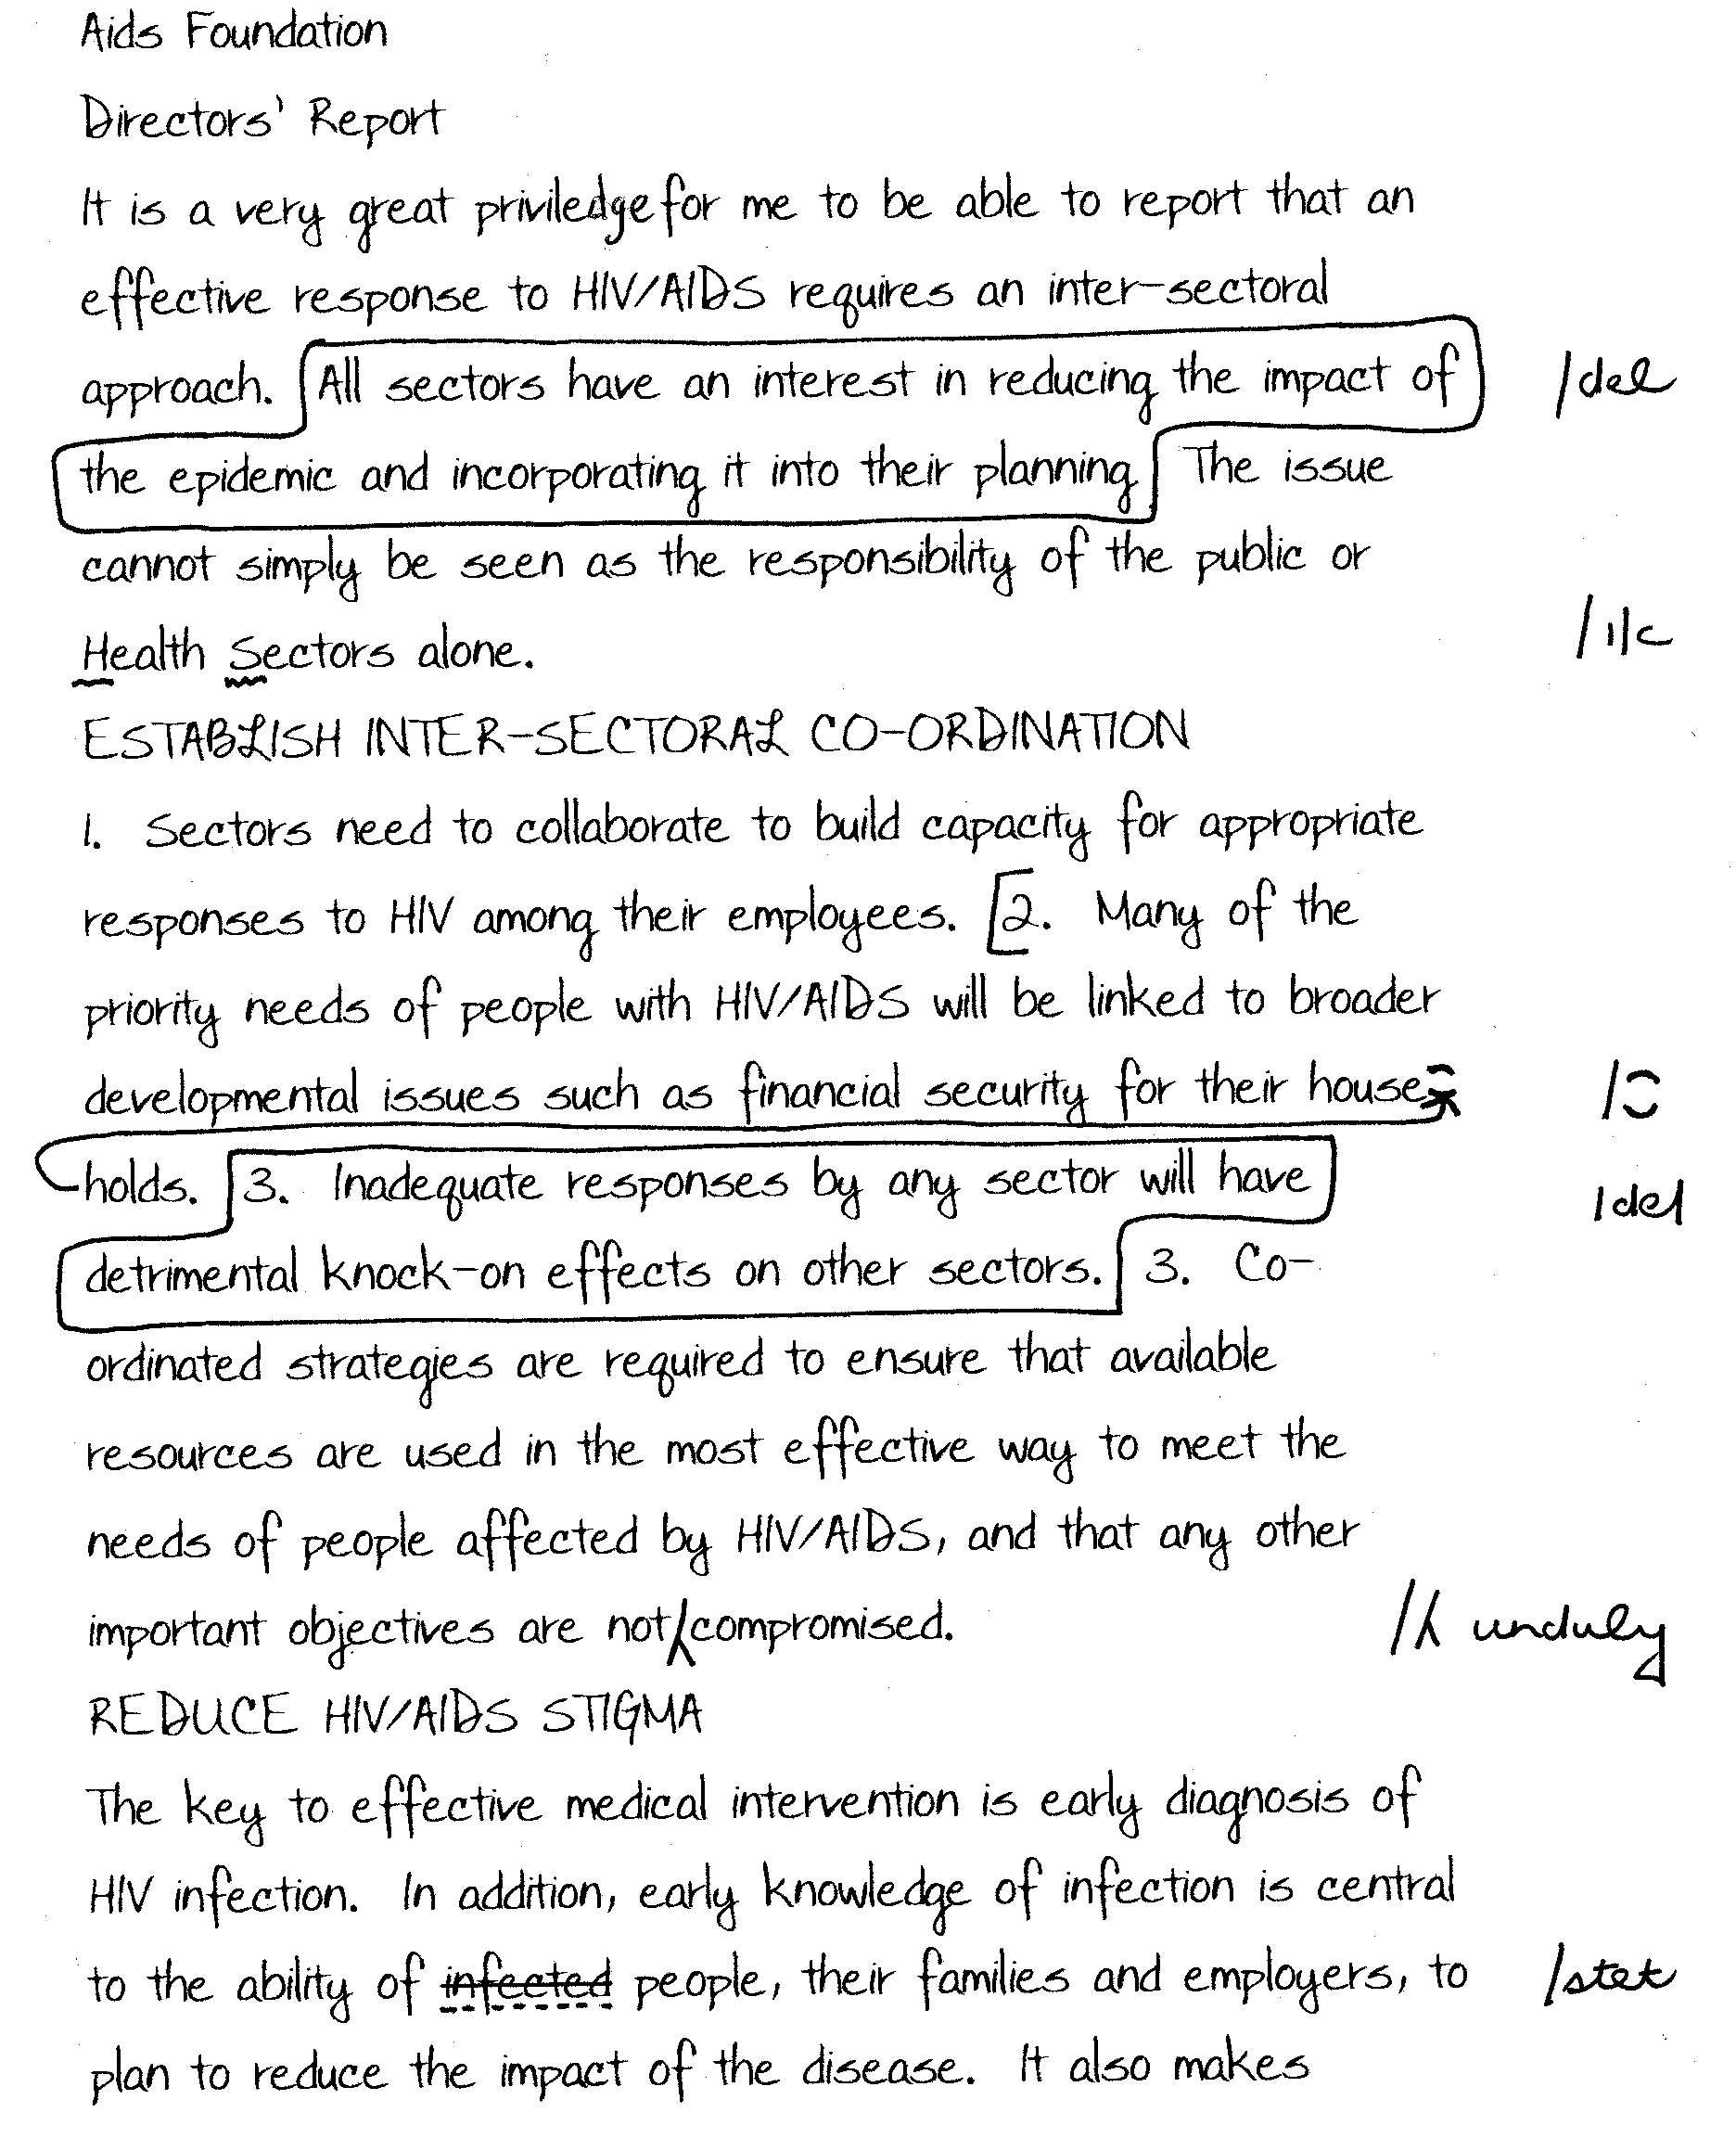 Aids Foundation
Directors' Report
It is a very great priviledge for me to be able to report that an
effective response to HIV/AIDS requires an inter-sectoral
approach. All sectors have an interest in reducing the impact of /del
the epidemic and incorporating it into their planning The issue
cannot simply be seen as the responsibility of the public or
Health Sectors alone. /l/c
ESTABLISH INTER-SECTORAL CO-ORDINATION
1. Sectors need to collaborate to build capacity for appropriate
responses to HIV among their employees. [2. Many of the
priority needs of people with HIV/AIDS will be linked to broader
developmental issues such as financial security for their house-
holds. 3. Inadequate responses by any sector will have /del
detrimental knock-on effects on other sectors. 3. Co-
ordinated strategies are required to ensure that available
resources are used in the most effective way to meet the
needs of people affected by HIV/AIDS, and that any other
important objectives are not compromised. /⁁ unduly
REDUCE HIV/AIDS STIGMA
The key to effective medical intervention is early diagnosis of
HIV infection. In addition, early knowledge of infection is central
to the ability of infected people, their families and employers, to /stet
plan to reduce the impact of the disease. It also makes